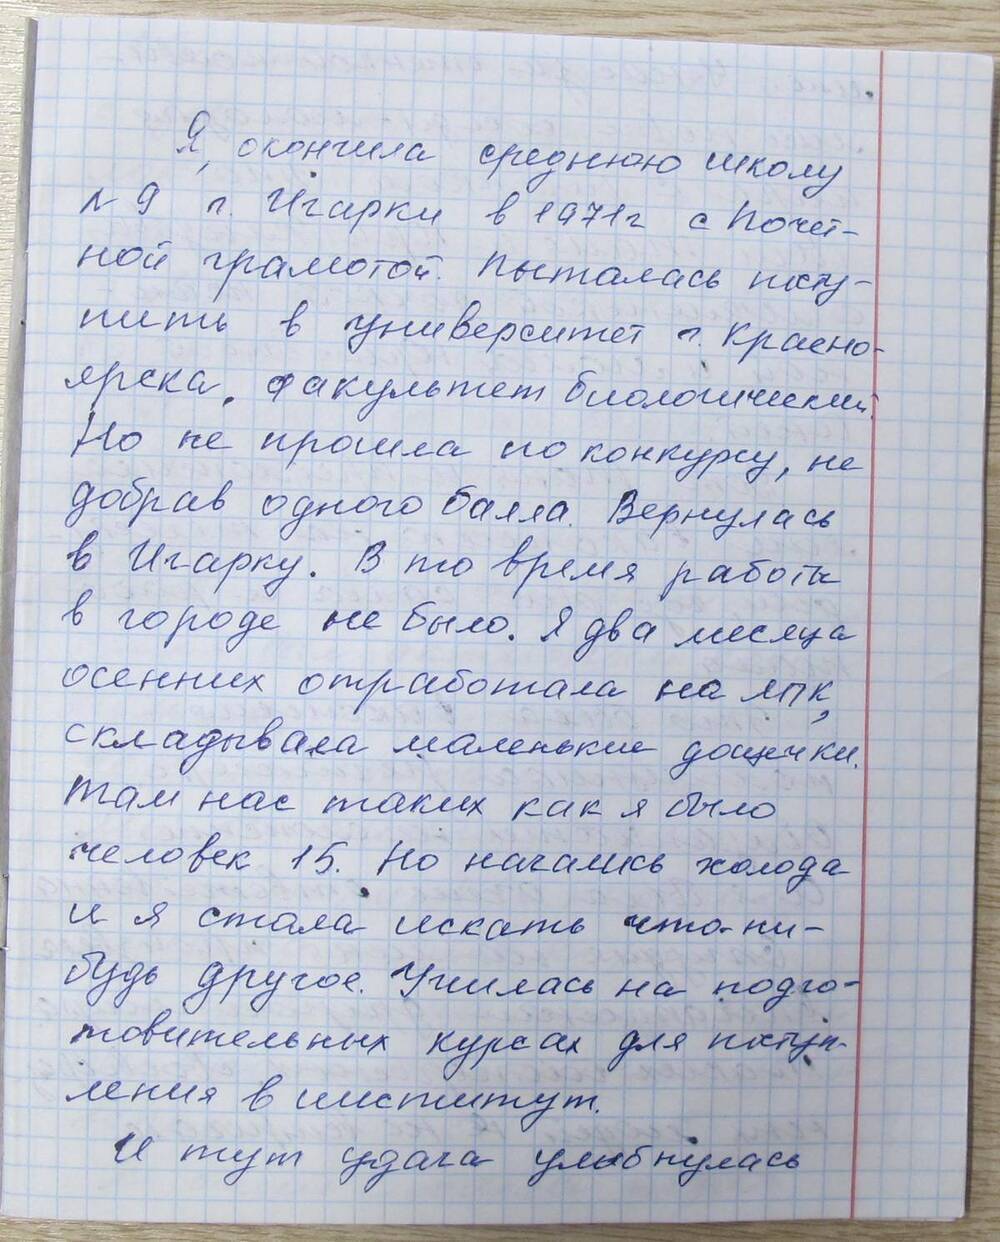 Я, окончила среднюю школу
№ 9 г. Игарки в 1971г с Почёт-
ной грамотой. Пыталась посту-
пить в университет г. Красно-
ярска, факультет биологический.
Но не прошла по конкурсу, не
добрав одного балла. Вернулась
в Игарку. В то время работы
в городе не было. Я два месяца
осенних отработала на ЛПК,
складывала маленькие дощечки.
Там нас таких как я было
человек 15. Но начались холода
и я стала искать что-ни-
будь другое. Училась на подго-
товительных курсах для поступ-
ления в институт.
И тут удача улыбнулась